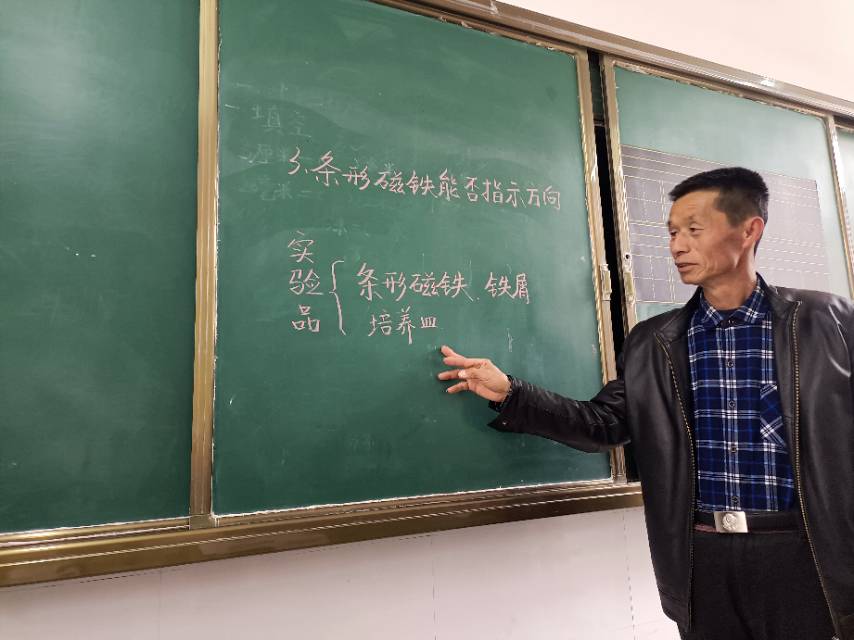 3、条形磁铁能否指示方向
实验品
条形磁铁、铁屑
培养皿
填空